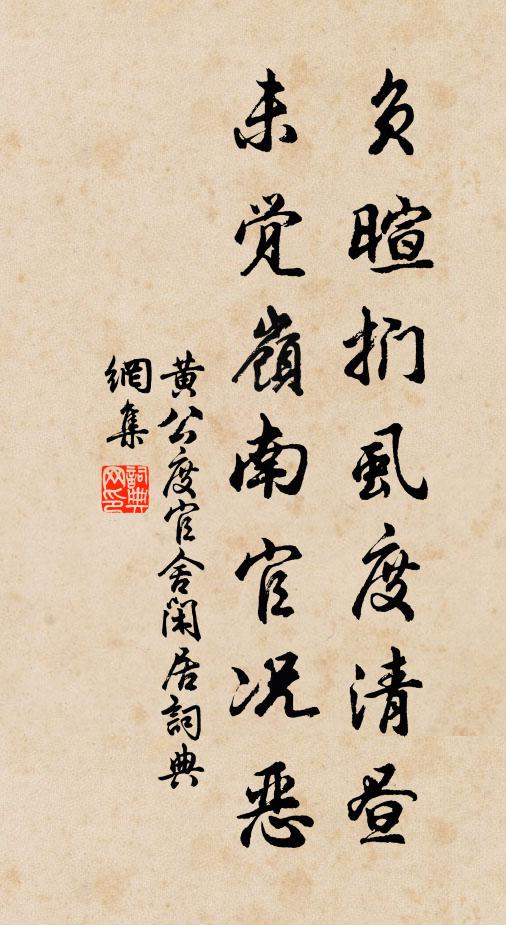 负暄扪虱度清昼
未觉嶺南官况恶
黄公度官舍闲居詞典
網集
詞典
网印